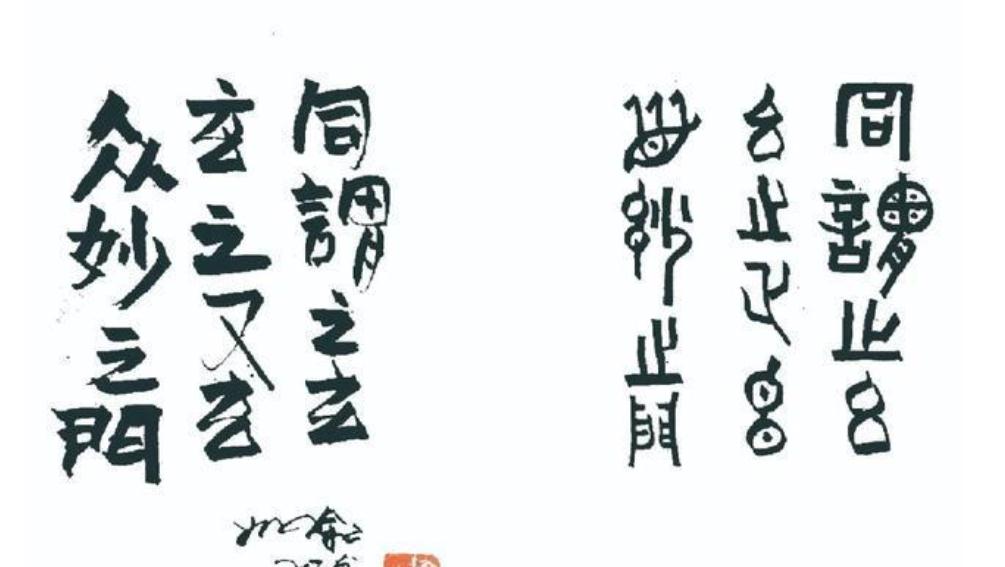 同謂之玄
玄之又玄
眾妙之門
同謂之玄
玄之又玄
众妙之門